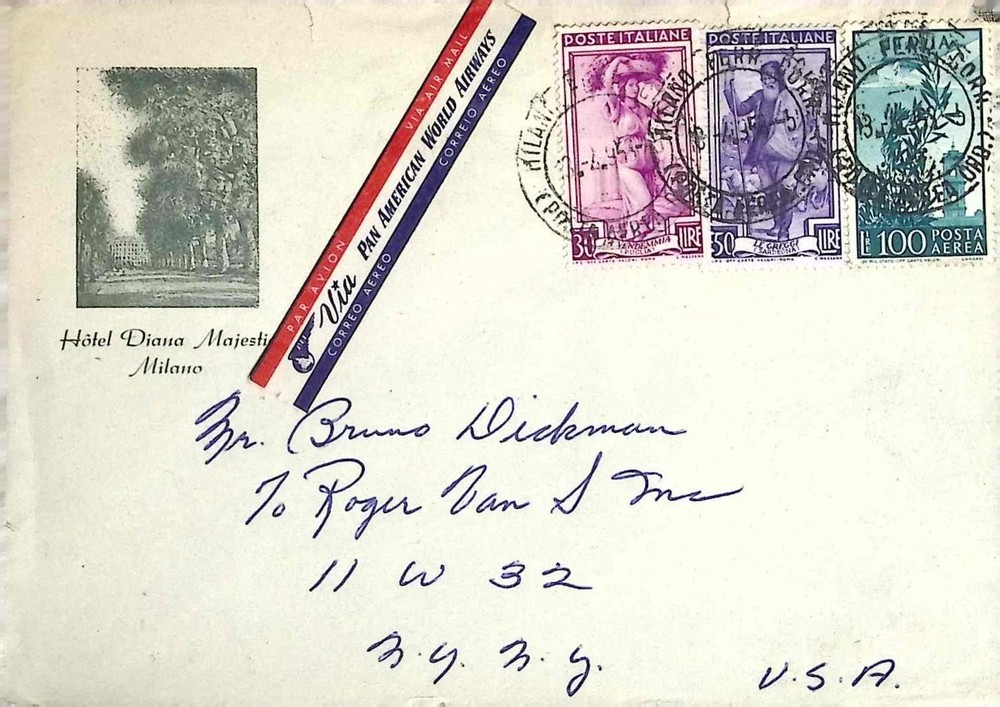 Hôtel Diana Majesti
Milano
VIA AIR MAIL
PAR AVION
Via PAN AMERICAN WORLD AIRWAYS
CORREIO AEREO
CORREO AEREO
POSTE ITALIANE
30 LA VENDEMMIA LIRE
(PUGLIA)
POSTE ITALIANE
50 LE GREGGI LIRE
(SARDEGNA)
LIRE 100 POSTA
AEREA
MILANO
MILANO FERR.
MILANO FERR.
Mr. Bruno Dickman
℅ Roger Van S Inc
11 W 32
N.Y. N.Y.
U.S.A.